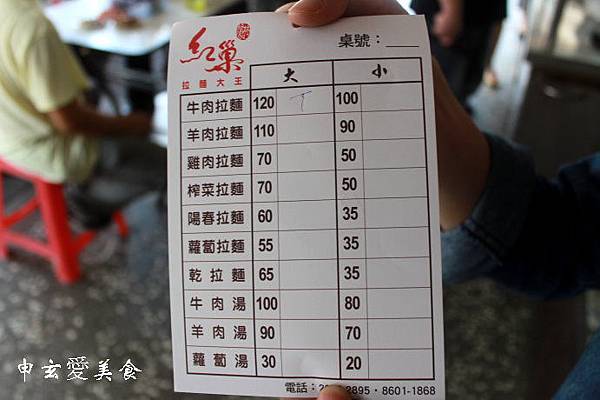 紅巢
拉麵大王
桌號：
大 小
牛肉拉麵 120 100
羊肉拉麵 110 90
雞肉拉麵 70 50
榨菜拉麵 70 50
陽春拉麵 60 35
蘿蔔拉麵 55 35
乾拉麵 65 35
牛肉湯 100 80
羊肉湯 90 70
蘿蔔湯 30 20
電話： 8601-1868
申玄愛美食